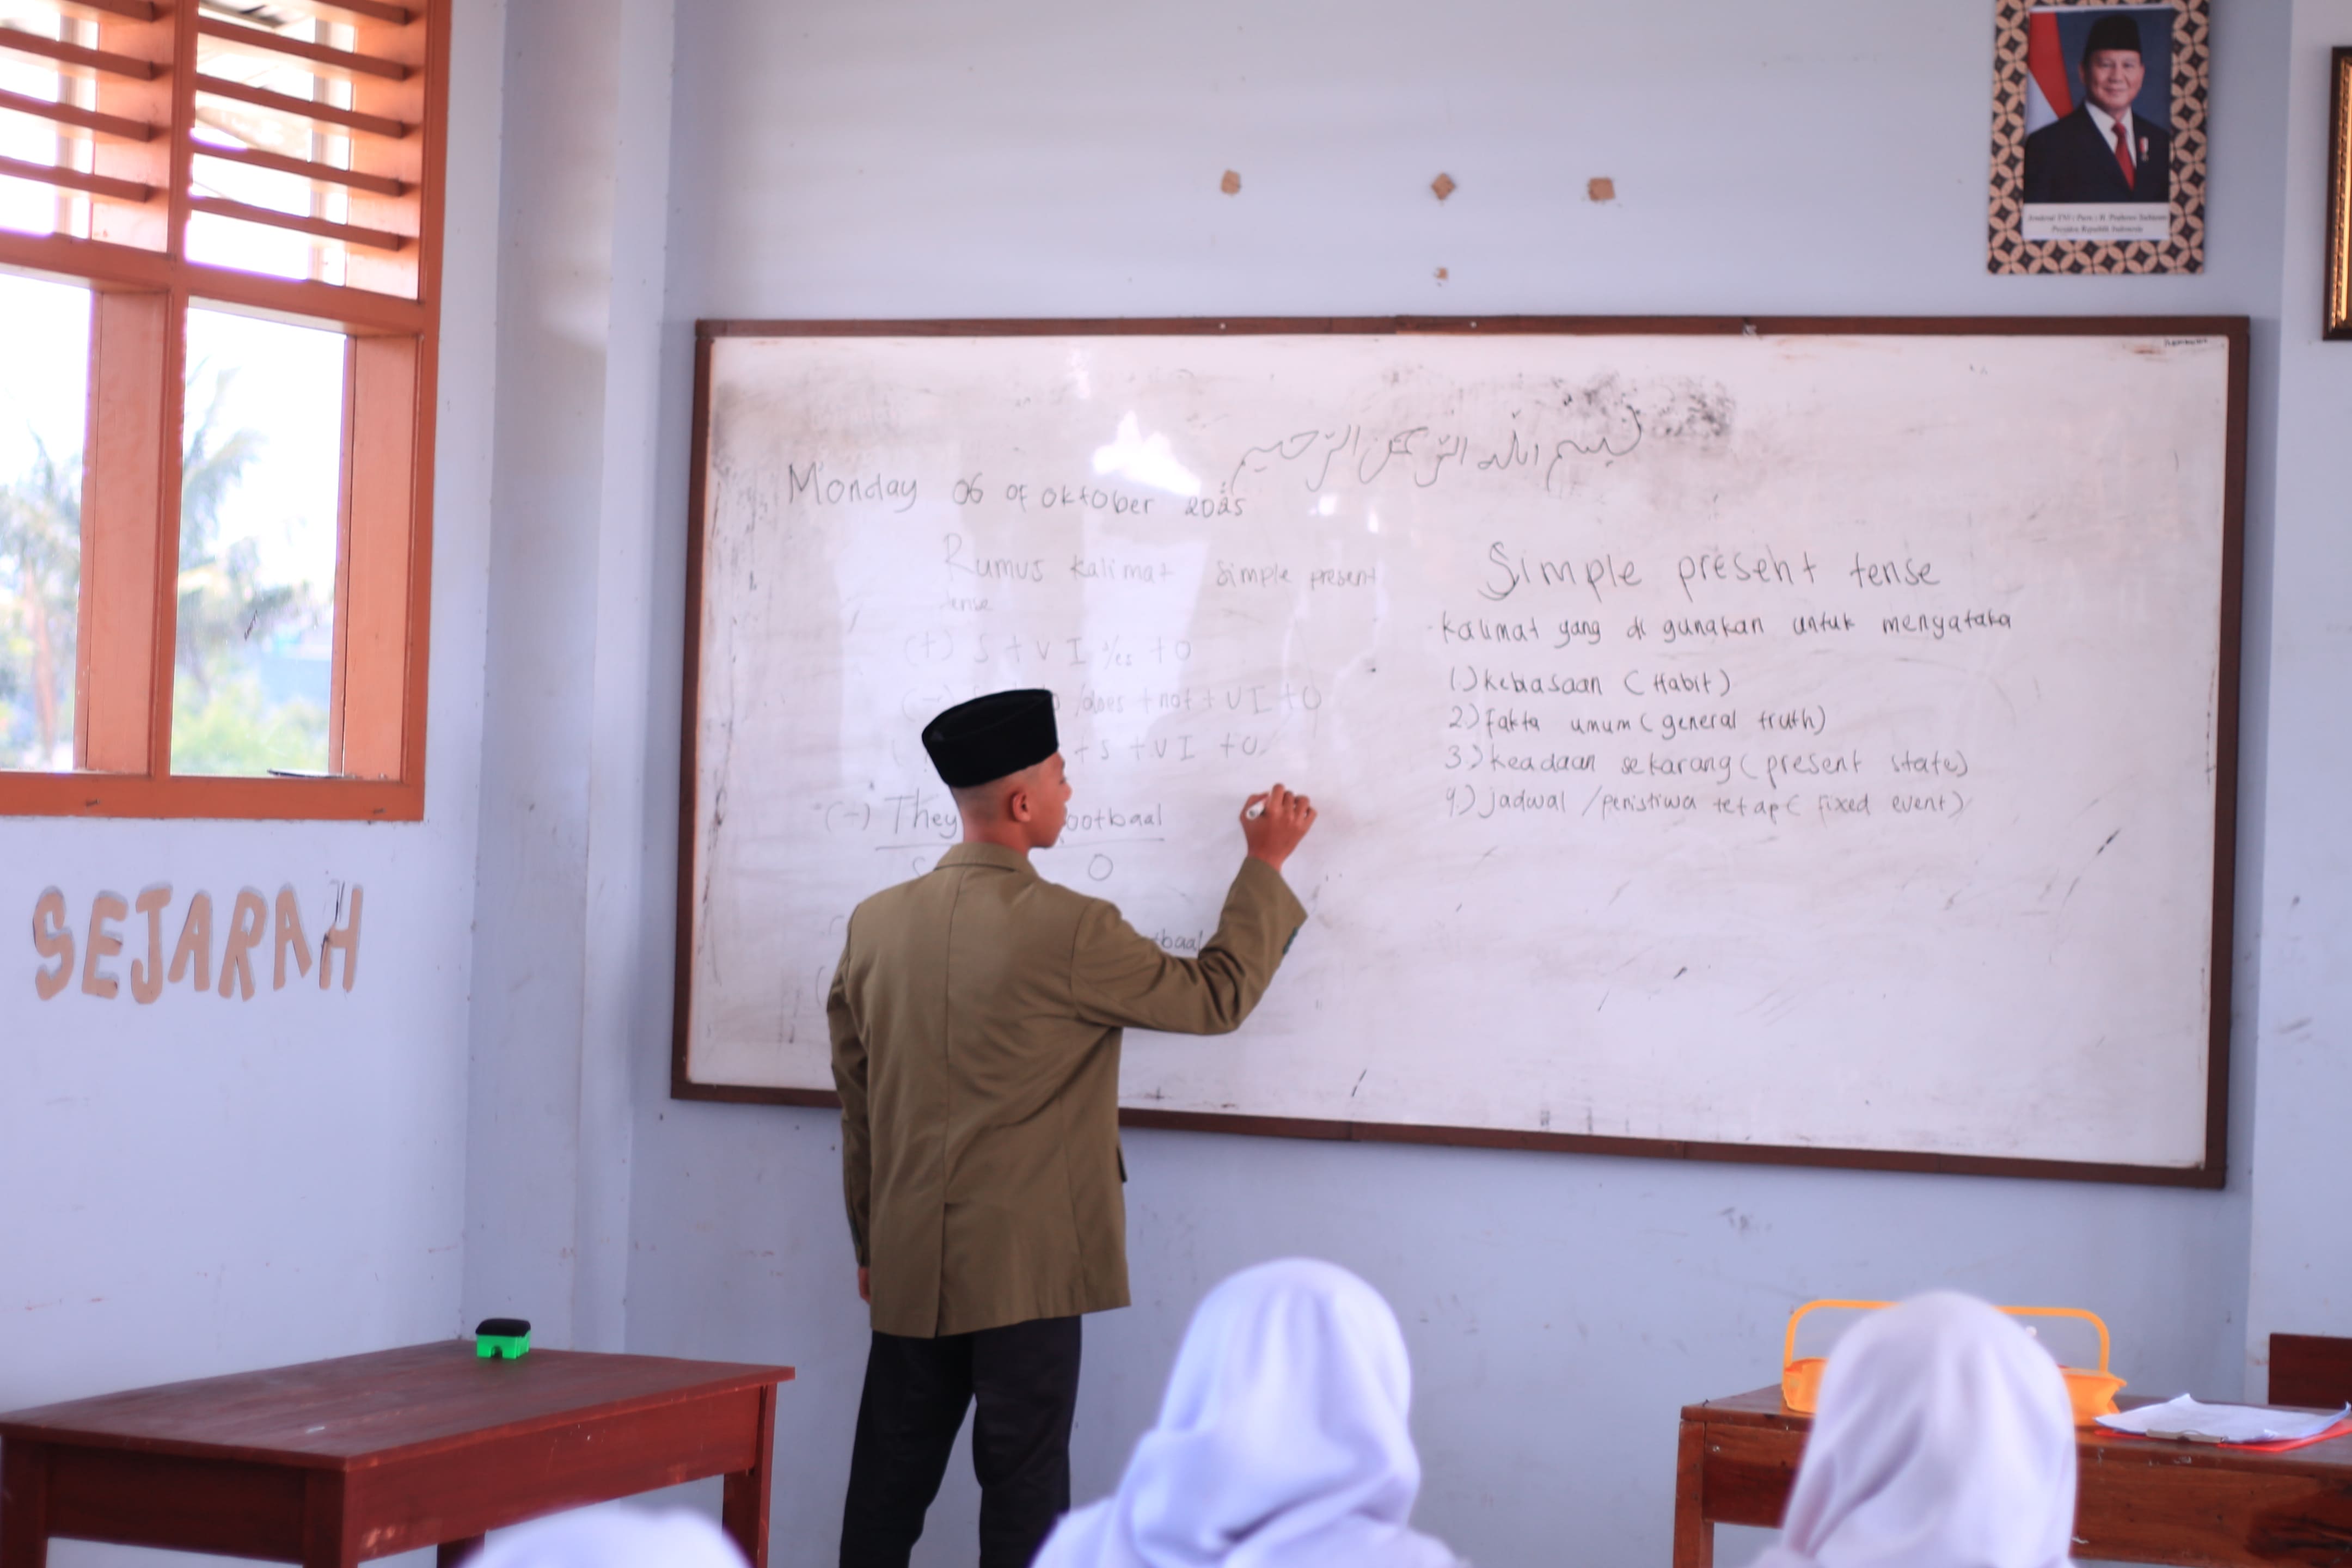 بسم الله الرّحمن الرّحيم
Monday 06 of oktober 2025
Rumus kalimat simple present
tense
(+) S + V I s/es + O
/does + not + V I + O
+ S + V I + O
(-) They ootbaal
S O
tbaal
Simple present tense
kalimat yang di gunakan untuk menyataka
1.) kebiasaan (Habit)
2) fakta umum (general truth)
3.) keadaan sekarang (present state)
4.) jadwal / peristiwa tetap ( fixed event)
SEJARAH
Jenderal TNI (Purn) H. Prabowo Subianto
Presiden Republik Indonesia